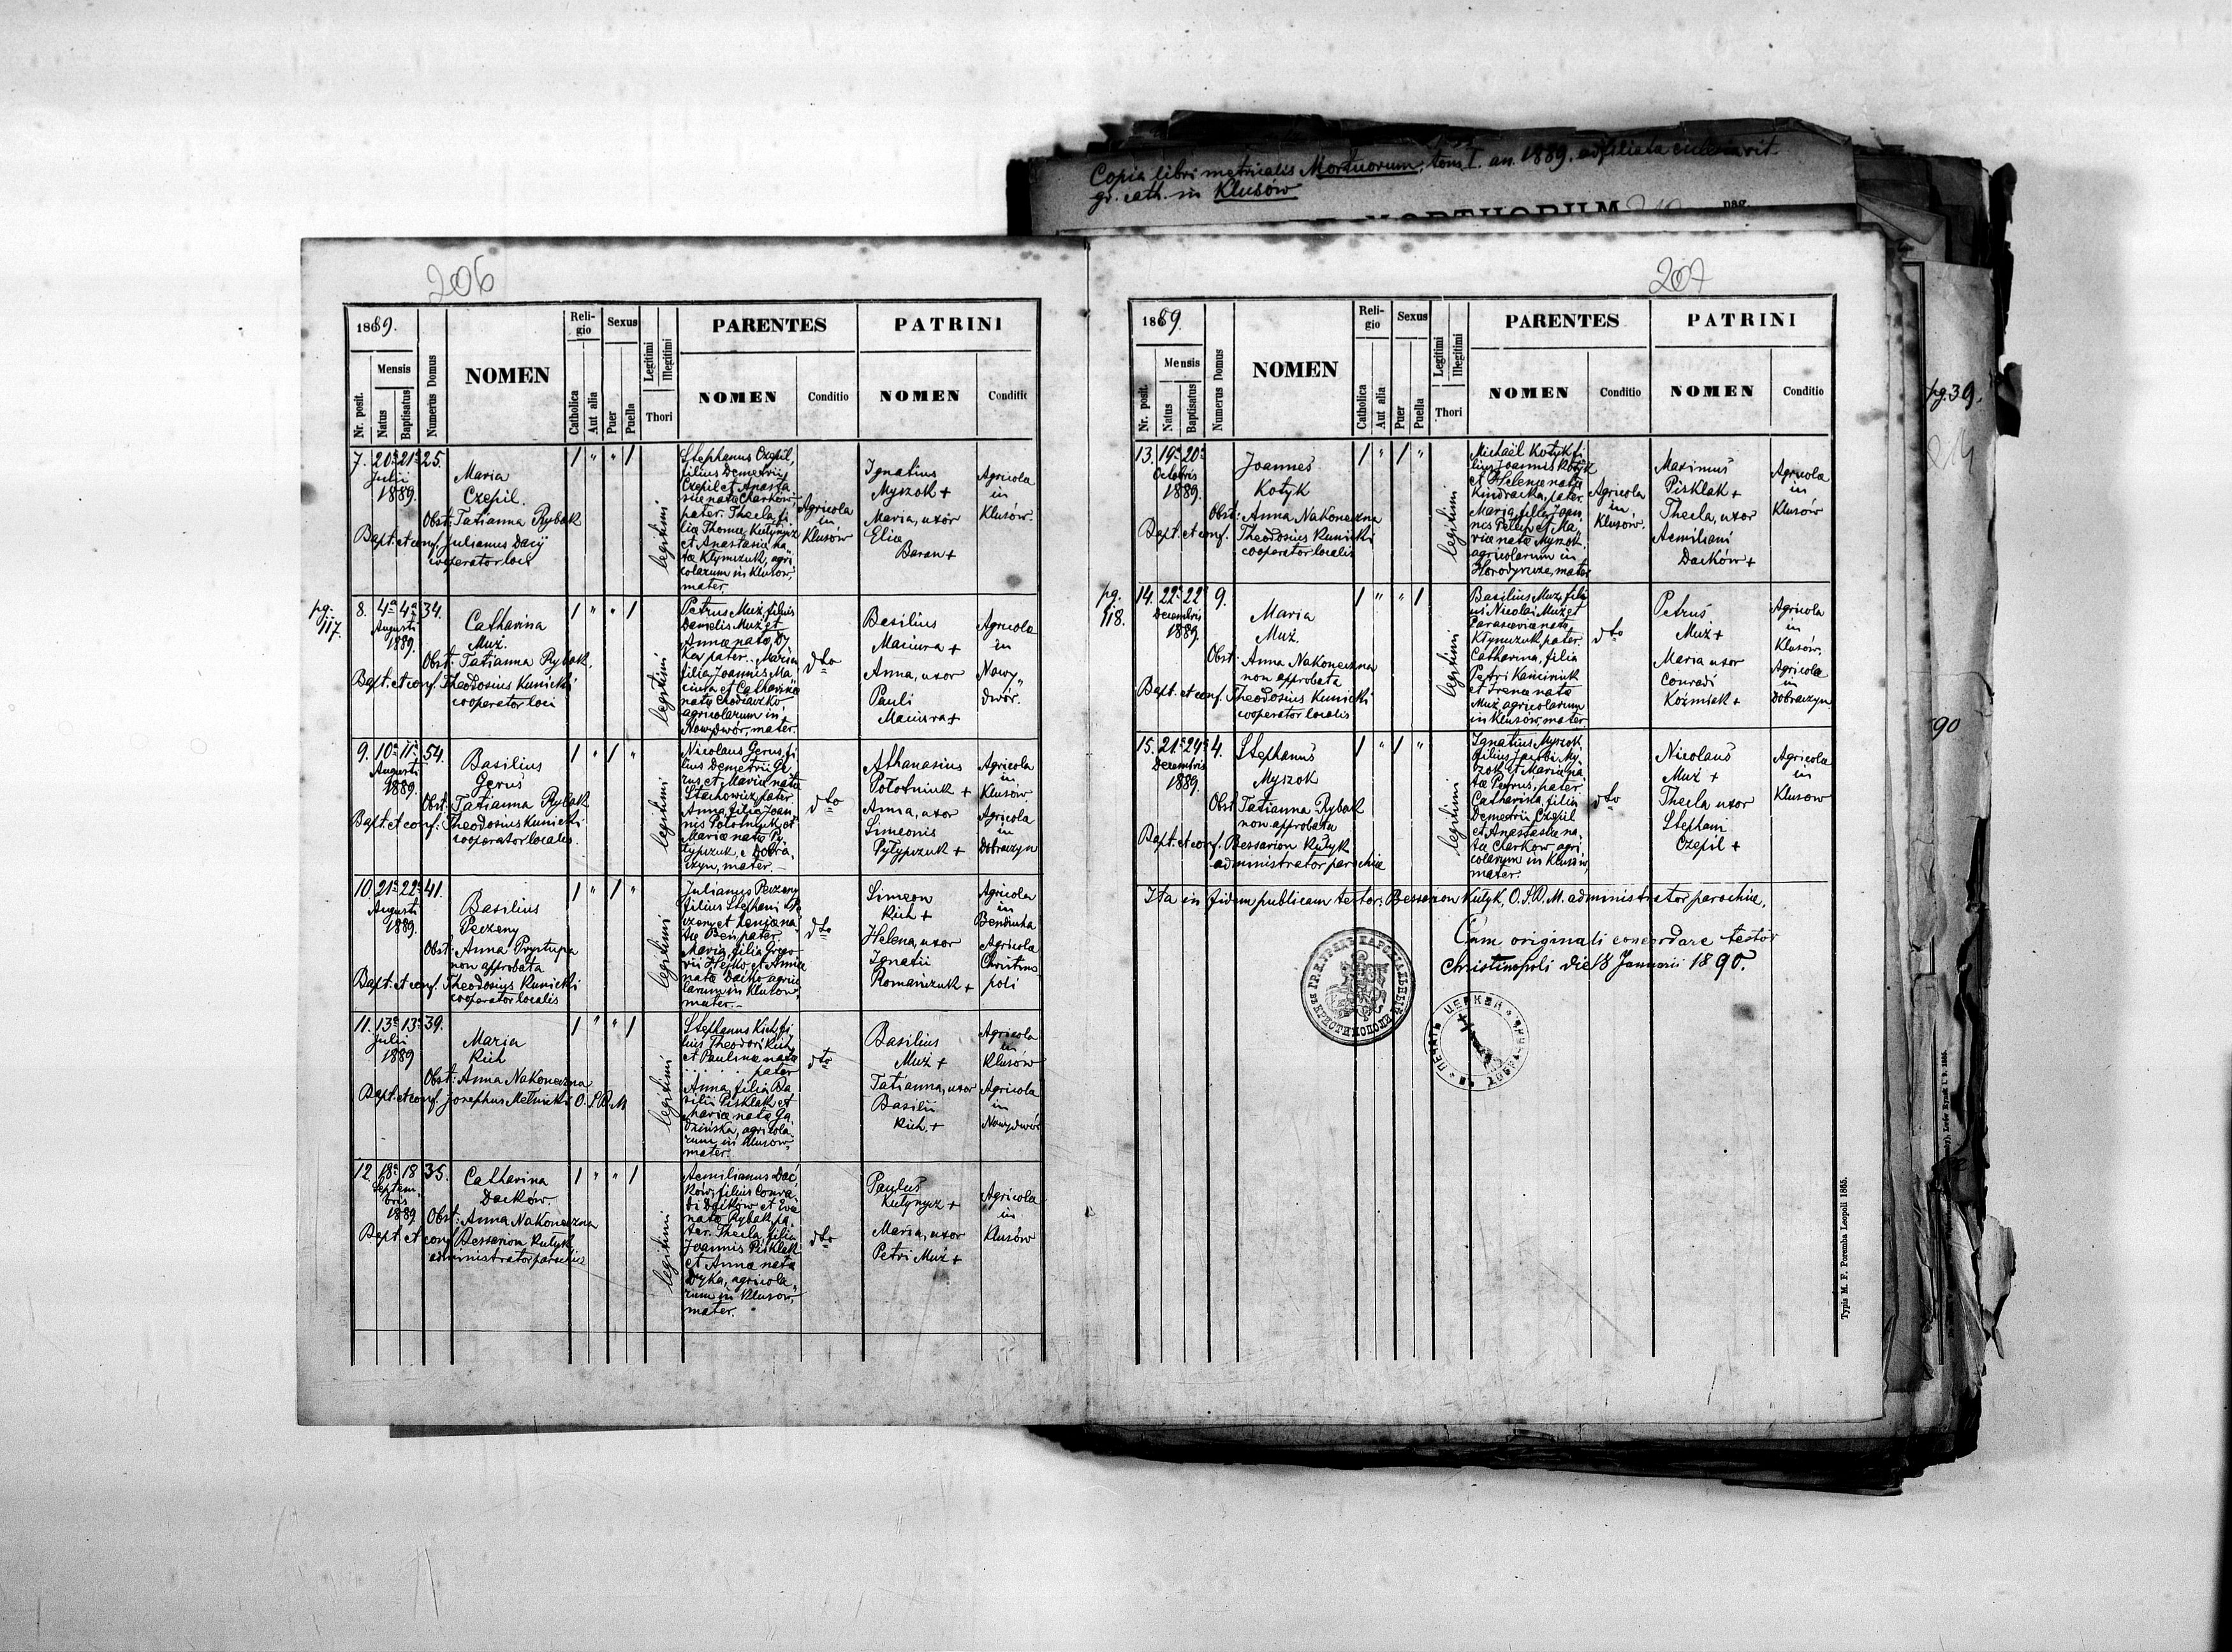 Copia libri metricalis Mortuorum, tom. I. an. 1889. ad filiata ecclesia rit.
gr. cath. in Klusów
pag.
206
1889.
Nr. posit.
Mensis
Natus
Baptisatus
Numerus Domus
NOMEN
Religio
Catholica
Aut alia
Sexus
Puer
Puella
Legitimi
Illegitimi
Thori
PARENTES
NOMEN
Conditio
PATRINI
NOMEN
Conditio
7. 20a 21a 25.
Julii
1889.
Maria
Czepil.
Obst: Tatianna Rybak
Bapt. et conf. Julianus Dacij
cooperator loci
1 " " 1
legitimi
Stephanus Czepil,
filius Demetrii
Czepil et Anasta
siæ natæ Charków,
pater. Thecla fi.
lia Thomæ Kutynycz
et Anastasiæ na
tæ Kłymczuk, agri
colarum in Klusów,
mater.
Agricola
in
Klusów
Ignatius
Myszok +
Maria, uxor
Eliæ
Baran +
Agricola
in
Klusów.
pg.
117.
8. 4a 4a 34.
Augusti
1889.
Catharina
Muż.
Obst: Tatianna Rybak.
Bapt. et conf. Theodosius Kunicki
cooperator loci
1 " " 1
legitimi
Petrus Muż, filius
Danielis Muż et
Annæ natæ Dy
ka pater. Maria
filia Joannis Ma
ciura et Catharinæ
natæ Chodaczko
agricolarum in
Nowydwór, mater.
dto
Basilius
Maciura +
Anna, uxor
Pauli
Maciura +
Agricola
in
Nowy„
dwór.
9. 10a 11a 54.
Augusti
1889.
Basilius
Geruś
Obst: Tatianna Rybak
Bapt. et conf: Theodosius Kunicki
cooperator localis.
1 " 1 "
legitimi
Nicolaus Gerus, fi
lius Demetrii Ge
rus et Mariæ natæ
Stachowicz, pater
Anna, filia Joan
nis Połotniuk et
Mariæ natæ Py
łypczuk, e Dobra
czyn, mater.
dto
Athanasius
Połotniuk +
Anna, uxor
Simeonis
Pyłypczuk +
Agricola
in
Klusów
Agricola
in
Dobraczyn
10. 21a 22a 41.
Augusti
1889.
Basilius
Peczeny
Obst: Anna Prystupa
non approbata
Bapt. et conf. Theodosius Kunicki
cooperator localis
1 " 1 "
legitimi
Julianus Peczeny
filius Stephani Pe
czeny et Xeniæ na
tæ Ben, pater
Maria, filia Grego
rii Hełko, et Annæ
natæ Dacko agrico
larum in Klusów,
mater.
dto
Simeon
Kich +
Helena, uxor
Ignatii
Romańczuk +
Agricola
in
Bendiuha
Agricola
Christino
poli
11. 13a 13a 39.
Julii
1889
Maria
Kich
Obst: Anna Nakoneczna
Bapt. et conf. Josephus Melnicki O. S. B. M
1 " " 1
legitimi
Stephanus Kich, fi
lius Theodori Kich
et Paulinæ natæ
. . . . . pater
Anna, filia Ba
silii Pisklak et
Mariæ natæ Ga
dzińska, agricola
rum in Klusów,
mater.
dto
Basilius
Muż +
Tatianna, uxor
Basilii
Kich. +
Agricola
in
Klusów
Agricola
in
Nowydwór
12. 18a 18 35.
Septem
bris
1889
Catharina
Dacków
Obst: Anna Nakoneczna
Bapt. et conf. Bessarion Kułyk
administrator parochiæ
1 " " 1
legitimi
Aemilianus Dac
ków, filius Conra
di Dacków et Evæ
natæ Rybak, pa
ter. Thecla, filia
Joannis Pisklak
et Annæ natæ
Dyka, agricola
rum in Klusów,
mater.
dto
Paulus
Kutynycz +
Maria, uxor
Petri Muż +
Agricola
in
Klusów
207
1889.
Nr. posit.
Mensis
Natus
Baptisatus
Numerus Domus
NOMEN
Religio
Catholica
Aut alia
Sexus
Puer
Puella
Legitimi
Illegitimi
Thori
PARENTES
NOMEN
Conditio
PATRINI
NOMEN
Conditio
13. 19a 20a
Octobris
1889.
Joannes
Kotyk
Obst: Anna Nakoneczna
Bapt. et conf. Theodosius Kunicki
cooperator localis
1 " 1 "
legitimi
Michaël Kotyk fi
lius Joannis Kotyk
et Helenæ natæ
Kindracka, pater.
Maria, filia Joan
nis Pełech et Ma
riæ natæ Myszok
agricolarum in
Horodyszcze, mater
Agricola
in
Klusów.
Maximus
Pisklak +
Thecla, uxor
Aemiliani
Dacków +
Agricola
in
Klusów
pg.
118.
14. 22a 22a 9.
Decembris
1889.
Maria
Muż.
Obst: Anna Nakoneczna
non approbata
Bapt. et conf. Theodosius Kunicki
cooperator localis
1 " " 1
legitimi
Basilius Muż, fili
us Nicolai Muż et
Parasceviæ natæ
Kłymczuk pater.
Catharina, filia
Petri Kaminiuk
et Irenæ natæ
Muż agricolarum
in Klusów, mater
dto
Petrus
Muż +
Maria uxor
Conradi
Koźmiak +
Agricola
in
Klusów.
Agricola
in
Dobraczyn
15. 21a 24a 4.
Decembris
1889.
Stephanus
Myszok
Obst: Tatianna Rybak
non approbata
Bapt. et conf. Bessarion Kułyk
administrator parochiæ
1 " 1 "
legitimi
Ignatius Myszok
filius Jacobi My
szok et Mariæ na
tæ Petruś, pater
Catharina, filia
Demetrii Czepil
et Anastasiæ na
tæ Charków, agri
colarum in Klusów,
mater.
dto
Nicolaus
Muż +
Thecla uxor
Stephani
Czepil +
Agricola
in
Klusow
Ita in fidem publicam testor: Bessarion Kułyk, O. S. B. M. administrator parochiæ,
Cum originali concordare testor
Christinopoli die 18 Januarii 1890.
Typis M. F. Poremba Leopoli 1865.
pg. 39.
90